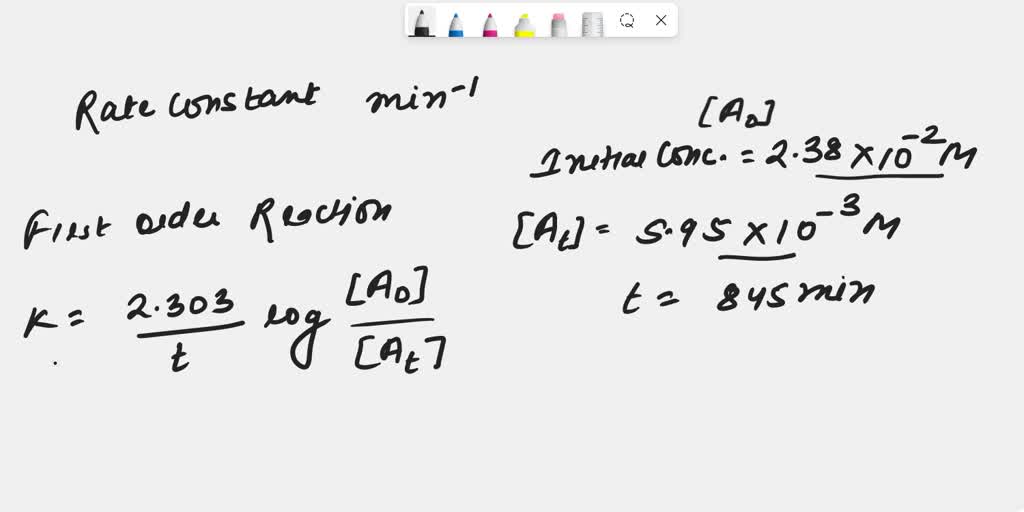 Rate constant min⁻¹
First order Reaction
K = 2.303/t log [A₀]/[Aₜ]
[A₀]
Initial Conc. = 2.38 × 10⁻² M
[Aₜ] = 5.95 × 10⁻³ M
t = 845 min